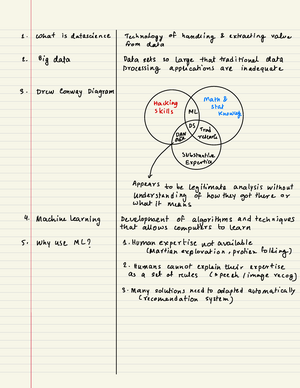 1. What is datascience
Technology of handling & extracting value
from data
2. Big data
Data sets so large that traditional data
processing applications are inadequate
3. Drew Conway Diagram
Hacking
skills
Math &
Stat
Knowledge
ML
DS
DAN
GER
Trad
research
Substantive
Expertise
Appears to be legitimate analysis without
understanding of how they got there or
what it means
4. Machine learning
Development of algorithms and techniques
that allows computers to learn
5. Why use ML?
1. Human expertise not available
(Martian exploration, protien folding)
2. Humans cannot explain their expertise
as a set of rules (speech/image recog)
3. Many solutions need to adapted automatically
(recomendation system)